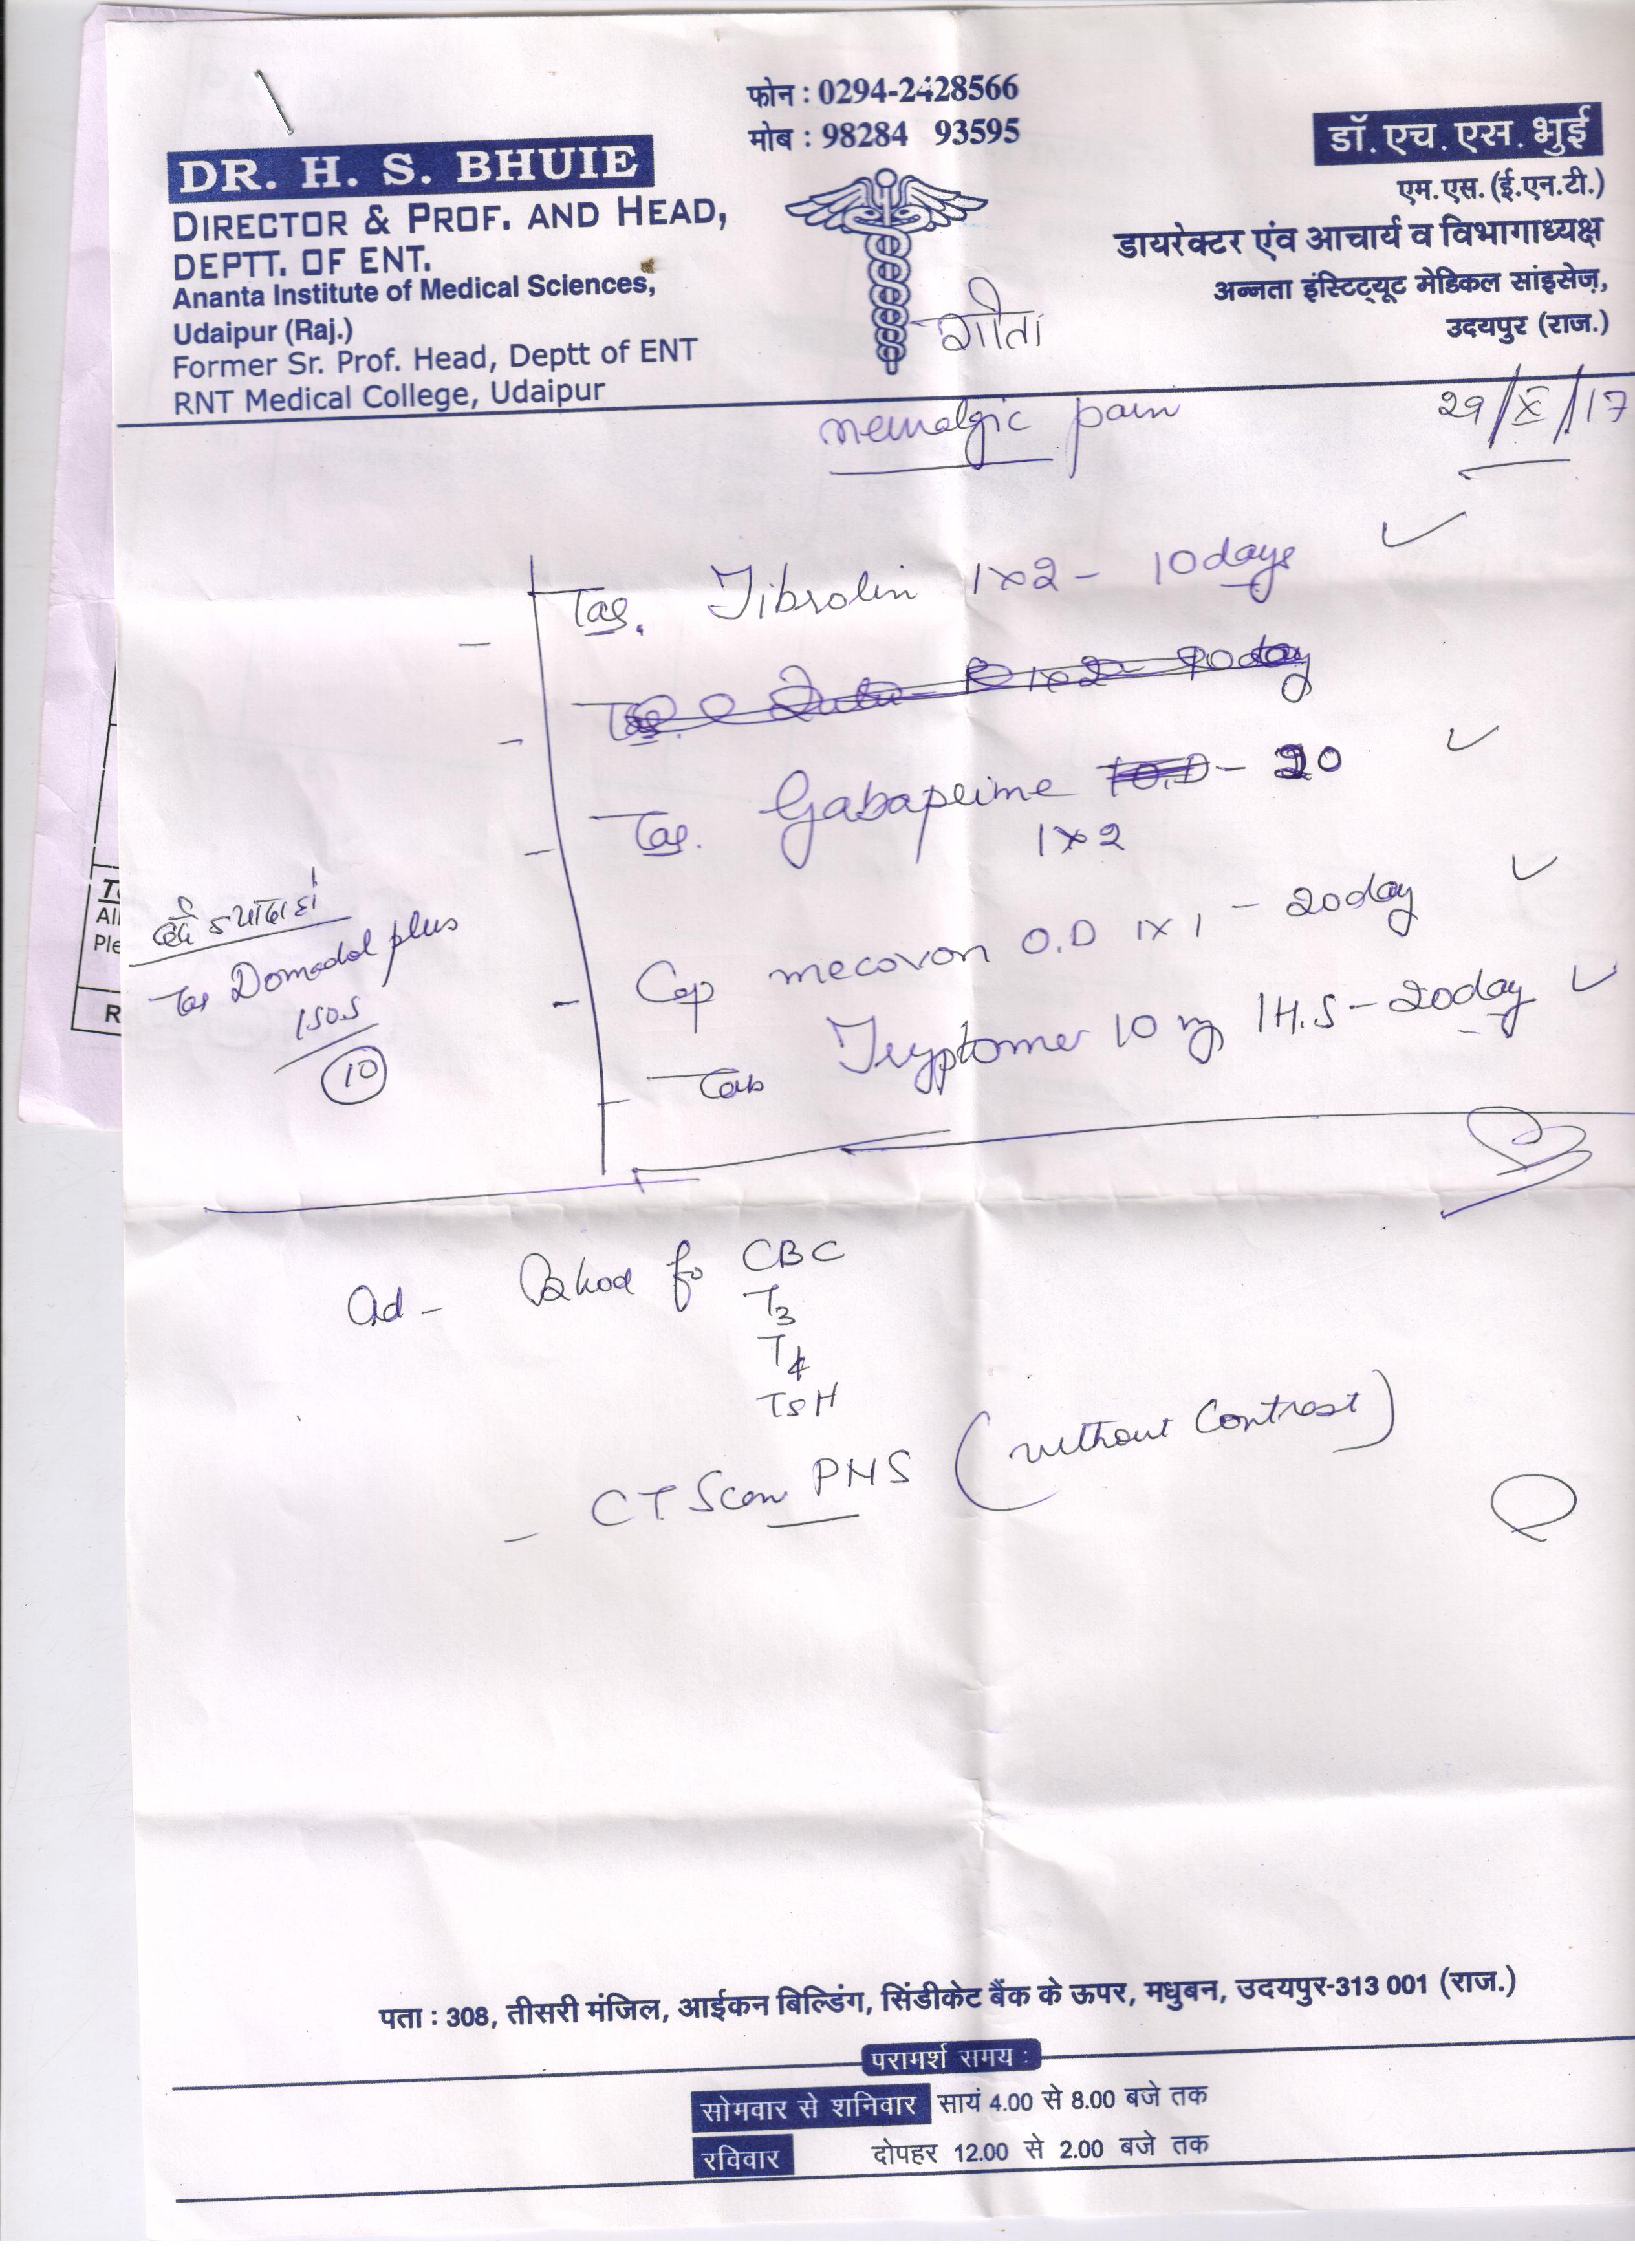 फोन : 0294-2428566
मोब : 98284 93595
DR. H. S. BHUIE
DIRECTOR & PROF. AND HEAD,
DEPTT. OF ENT.
Ananta Institute of Medical Sciences,
Udaipur (Raj.)
Former Sr. Prof. Head, Deptt of ENT
RNT Medical College, Udaipur
डॉ. एच. एस. भुई
एम.एस. (ई.एन.टी.)
डायरेक्टर एंव आचार्य व विभागाध्यक्ष
अन्नता इंस्टिट्यूट मेडिकल सांइसेज़,
उदयपुर (राज.)
गीता
neuralgic pain
29/X/17
Tab. Fibrolin 1x2 - 10 days
1x2
Tab. Gabaprime - 20
1x2
Cap mecovon O.D 1x1 - 20 day
Tab Tryptomer 10 mg 1 H.S - 20 day
दर्द ज्यादा हो
Tab Domadol plus
1 SOS
10
Ad - Blood fo CBC
T3
T4
TSH
- CT Scan PNS (without Contrast)
पता : 308, तीसरी मंजिल, आईकन बिल्डिंग, सिंडीकेट बैंक के ऊपर, मधुबन, उदयपुर-313 001 (राज.)
परामर्श समय :
सोमवार से शनिवार सायं 4.00 से 8.00 बजे तक
रविवार दोपहर 12.00 से 2.00 बजे तक
All
Ple
R